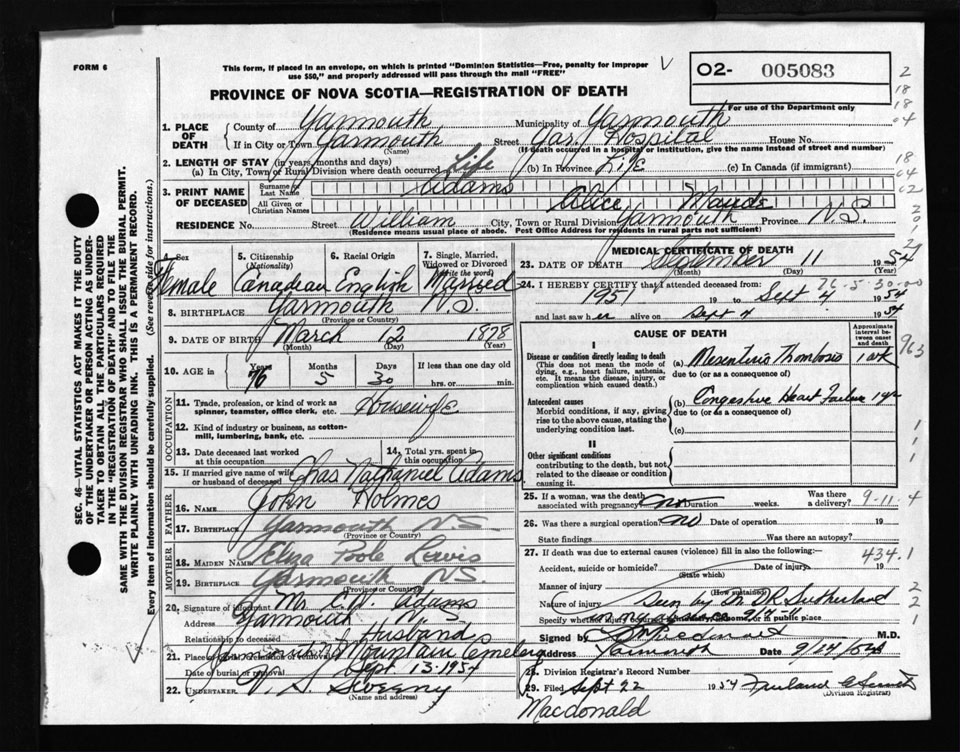 FORM 6
This form, if placed in an envelope, on which is printed "Dominion Statistics—Free, penalty for improper
use $50," and properly addressed will pass through the mail "FREE"
O2- 005083
For use of the Department only
PROVINCE OF NOVA SCOTIA—REGISTRATION OF DEATH
1. PLACE OF DEATH
County of Yarmouth Municipality of Yarmouth
If in City or Town Yarmouth Street Yar. Hospital House No.
(Name) (If death occurred in a hospital or institution, give the name instead of street and number)
2. LENGTH OF STAY (in years, months and days)
(a) In City, Town or Rural Division where death occurred Life (b) In Province Life (c) In Canada (if immigrant)
3. PRINT NAME OF DECEASED
Surname or Last Name Adams
All Given or Christian Names Alice Maude
RESIDENCE No. Street William City, Town or Rural Division Yarmouth Province N.S.
(Residence means usual place of abode. Post Office Address for residents in rural parts not sufficient)
Sex Female
5. Citizenship (Nationality) Canadian
6. Racial Origin English
7. Single, Married, Widowed or Divorced (Write the word) Married
8. BIRTHPLACE Yarmouth N.S.
(Province or Country)
9. DATE OF BIRTH March 12 1878
(Month) (Day) (Year)
10. AGE in Years 76 Months 5 Days 30 If less than one day old hrs. or min.
OCCUPATION
11. Trade, profession, or kind of work as spinner, teamster, office clerk, etc. Housewife
12. Kind of industry or business, as cotton-mill, lumbering, bank, etc.
13. Date deceased last worked at this occupation
14. Total yrs. spent in this occupation
15. If married give name of wife or husband of deceased Chas Nathaniel Adams
FATHER
16. NAME John Holmes
17. BIRTHPLACE Yarmouth N.S.
(Province or Country)
MOTHER
18. MAIDEN NAME Eliza Poole Lewis
19. BIRTHPLACE Yarmouth N.S.
(Province or Country)
20. Signature of informant Mr. C.N. Adams
Address Yarmouth N.S.
Relationship to deceased Husband
21. Place of burial, cremation or removal Mountain Cemetery
Date of burial or removal Sept. 13-1954
22. UNDERTAKER V. S. Sweeny
(Name and address)
MEDICAL CERTIFICATE OF DEATH
23. DATE OF DEATH September 11 1954
(Month) (Day) (Year)
24. I HEREBY CERTIFY that I attended deceased from:
76-5-30-00
1951 19 to Sept 4 1954
and last saw her alive on Sept 4 1954
CAUSE OF DEATH
Approximate interval between onset and death
I
Disease or condition directly leading to death
(This does not mean the mode of dying, e.g., heart failure, asthenia, etc. It means the disease, injury, or complication which caused death.)
(a) Mesenteric Thrombosis 1 wk
due to (or as a consequence of)
Antecedent causes
Morbid conditions, if any, giving rise to the above cause, stating the underlying condition last.
(b) Congestive Heart Failure 1 yr
due to (or as a consequence of)
(c)
II
Other significant conditions
contributing to the death, but not related to the disease or condition causing it.
25. If a woman, was the death associated with pregnancy? no Duration weeks. Was there a delivery?
9-11-4
26. Was there a surgical operation? no Date of operation 19
State findings Was there an autopsy?
27. If death was due to external causes (violence) fill in also the following:—
434.1
Accident, suicide or homicide? Date of injury 19
(State which)
Manner of injury
(How sustained)
Nature of injury Seen by Dr. DR Sutherland
Specify whether injury occurred in industry, in home, or in public place
Signed by M.D.
Address Yarmouth Date 9/14/54
28. Division Registrar's Record Number
29. Filed Sept 22 1954
(Division Registrar)
Macdonald
SEC. 46—VITAL STATISTICS ACT MAKES IT THE DUTY
OF THE UNDERTAKER OR PERSON ACTING AS UNDER-
TAKER TO OBTAIN ALL THE PARTICULARS REQUIRED
IN THE "REGISTRATION OF DEATH" AND TO FILE THE
SAME WITH THE DIVISION REGISTRAR WHO SHALL ISSUE THE BURIAL PERMIT.
WRITE PLAINLY WITH UNFADING INK. THIS IS A PERMANENT RECORD.
Every item of information should be carefully supplied. (See reverse side for instructions.)
2
18
18
04
18
04
02
2
0
1
2
963
1
1
1
2
2
1